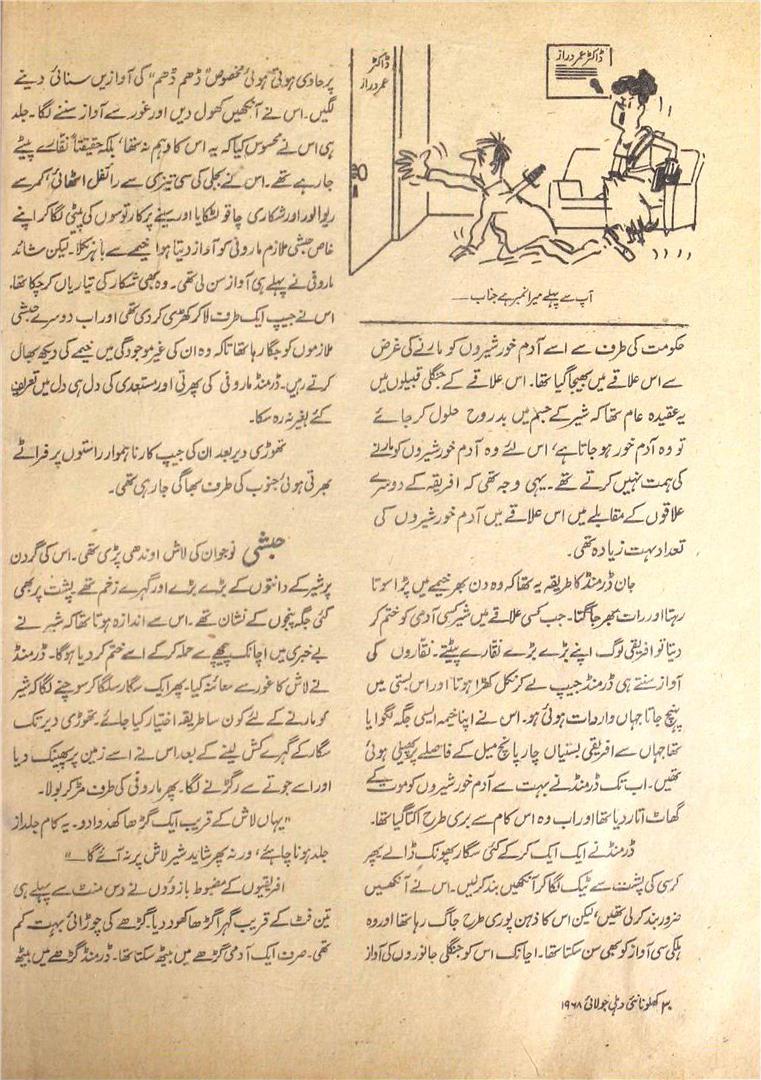 ڈاکٹر عمر دراز
ڈاکٹر
عمر دراز
آپ سے پہلے میرا نمبر ہے جناب ــــ
حکومت کی طرف سے اسے آدم خور شیروں کو مارنے کی غرض
سے اس علاقے میں بھیجا گیا تھا۔ اس علاقے کے جنگلی قبیلوں میں
یہ عقیدہ عام تھا کہ شیر کے جسم میں بد روح حلول کر جائے
تو وہ آدم خور ہو جاتا ہے، اس لئے وہ آدم خور شیروں کو مارنے
کی ہمت نہیں کرتے تھے۔ یہی وجہ تھی کہ افریقہ کے دوسرے
علاقوں کے مقابلے میں اس علاقے میں آدم خور شیروں کی
تعداد بہت زیادہ تھی۔
جان ڈرمنڈ کا طریقہ یہ تھا کہ وہ دن بھر خیمے میں پڑا سوتا
رہتا اور رات بھر جاگتا۔ جب کسی علاقے میں شیر کسی آدمی کو ختم کر
دیتا تو افریقی لوگ اپنے بڑے بڑے نقارے پیٹتے۔ نقاروں کی
آواز سنتے ہی ڈرمنڈ جیپ لے کر نکل کھڑا ہوتا اور اس بستی میں
پہنچ جاتا جہاں واردات ہوئی ہو۔ اس نے اپنا خیمہ ایسی جگہ لگوایا
تھا جہاں سے افریقی بستیاں چار پانچ میل کے فاصلے پر پھیلی ہوئی
تھیں۔ اب تک ڈرمنڈ نے بہت سے آدم خور شیروں کو موت کے
گھاٹ اتار دیا تھا اور اب وہ اس کام سے بری طرح اکتا گیا تھا۔
ڈرمنڈ نے ایک ایک کر کے کئی سگار پھونک ڈالے پھر
کرسی کی پشت سے ٹیک لگا کر آنکھیں بند کر لیں۔ اس نے آنکھیں
ضرور بند کر لی تھیں، لیکن اس کا ذہن پوری طرح جاگ رہا تھا اور وہ
ہلکی سی آواز کو بھی سن سکتا تھا۔ اچانک اس کو جنگلی جانوروں کی آواز
پر حاوی ہوتی ہوئی مخصوص "ڈھم ڈھم" کی آوازیں سنائی دینے
لگیں۔ اس نے آنکھیں کھول دیں اور غور سے آواز سننے لگا۔ جلد
ہی اس نے محسوس کیا کہ یہ اس کا وہم نہ تھا، بلکہ حقیقتاً نقارے پیٹے
جا رہے تھے۔ اس نے بجلی کی سی تیزی سے رائفل اٹھائی، کمر سے
ریوالور اور شکاری چاقو لٹکایا اور سینے پر کارتوسوں کی پیٹی لگا کر اپنے
خاص حبشی ملازم ماروفی کو آواز دیتا ہوا خیمے سے باہر نکلا۔ لیکن شائد
ماروفی نے پہلے ہی آواز سن لی تھی۔ وہ بھی شکار کی تیاریاں کر چکا تھا۔
اس نے جیپ ایک طرف لا کر کھڑی کر دی تھی اور اب دوسرے حبشی
ملازموں کو جگا رہا تھا تاکہ وہ ان کی غیر موجودگی میں خیمے کی دیکھ بھال
کرتے رہیں۔ ڈرمنڈ ماروفی کی پھرتی اور مستعدی کی دل ہی دل میں تعریف
کئے بغیر نہ رہ سکا۔
تھوڑی دیر بعد ان کی جیپ کار ناہموار راستوں پر فراٹے
بھرتی ہوئی جنوب کی طرف بھاگی جا رہی تھی۔
حبشی نوجوان کی لاش اوندھی پڑی تھی۔ اس کی گردن
پر شیر کے دانتوں کے بڑے بڑے اور گہرے زخم تھے۔ پشت پر بھی
کئی جگہ پنجوں کے نشان تھے۔ اس سے اندازہ ہوتا تھا کہ شیر نے
بے خبری میں اچانک پیچھے سے حملہ کر کے اسے ختم کر دیا ہوگا۔ ڈرمنڈ
نے لاش کا غور سے معائنہ کیا۔ پھر ایک سگار سلگا کر سوچنے لگا کہ شیر
کو مارنے کے لئے کون سا طریقہ اختیار کیا جائے۔ تھوڑی دیر تک
سگار کے گہرے کش لینے کے بعد اس نے اسے زمین پر پھینک دیا
اور اسے جوتے سے رگڑنے لگا۔ پھر ماروفی کی طرف مڑ کر بولا۔
"یہاں لاش کے قریب ایک گڑھا کھدوا دو۔ یہ کام جلد از
جلد ہونا چاہئے، ورنہ پھر شاید شیر لاش پر نہ آئے گا۔"
افریقیوں کے مضبوط بازوؤں نے دس منٹ سے پہلے ہی
تین فٹ کے قریب گہرا گڑھا کھود دیا۔ گڑھے کی چوڑائی بہت کم
تھی۔ صرف ایک آدمی گڑھے میں بیٹھ سکتا تھا۔ ڈرمنڈ گڑھے میں بیٹھ
۳۰ کھلونا نئی دہلی جولائی ۱۹۶۸